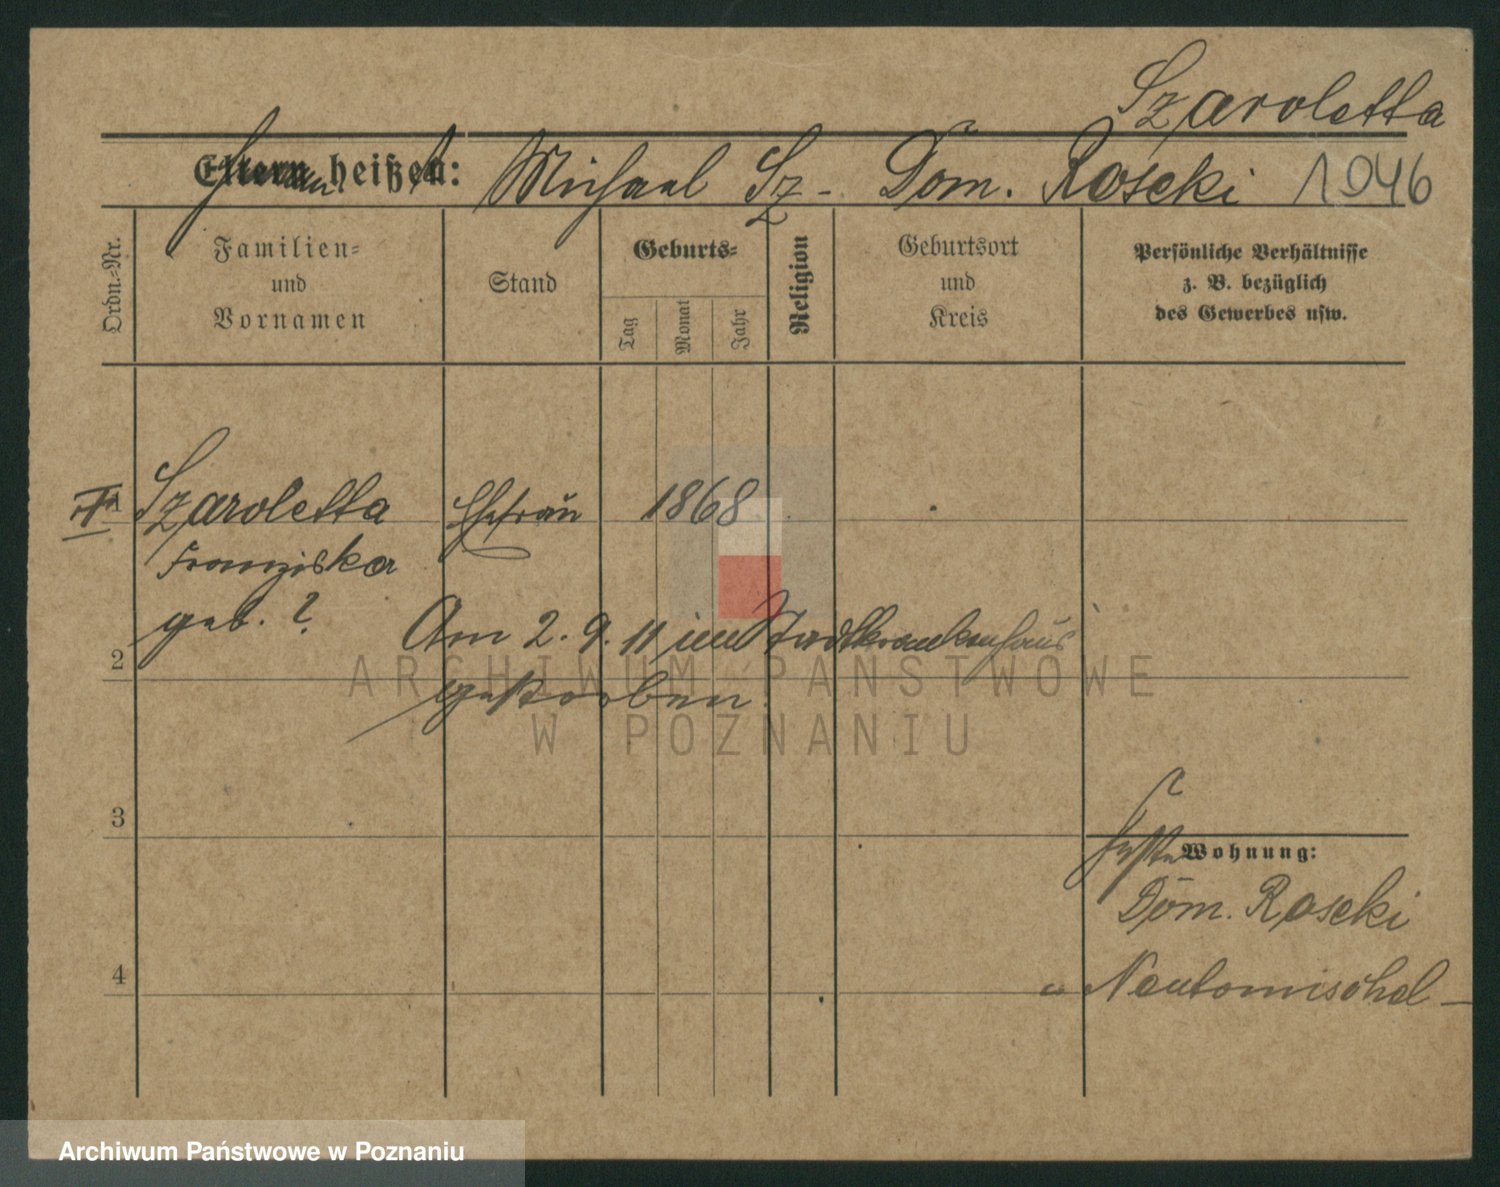 Szaroletta
Eltern heißen: Michael Sz- Dom. Roseki 1046
Ordn.-Nr.
Familien=
und
Vornamen
Stand
Geburts=
Tag
Monat
Jahr
Religion
Geburtsort
und
Kreis
Persönliche Verhältnisse
z. B. bezüglich
des Gewerbes usw.
1 Szaroletta Ehefrau 1868
Franziska
geb. ? Am 2. 9. 11 im Stadtkrankenhaus
2
gestorben.
ARCHIWUM PAŃSTWOWE
W POZNANIU
3
Wohnung:
Dom. Roseki
4
Neutomischel
Archiwum Państwowe w Poznaniu